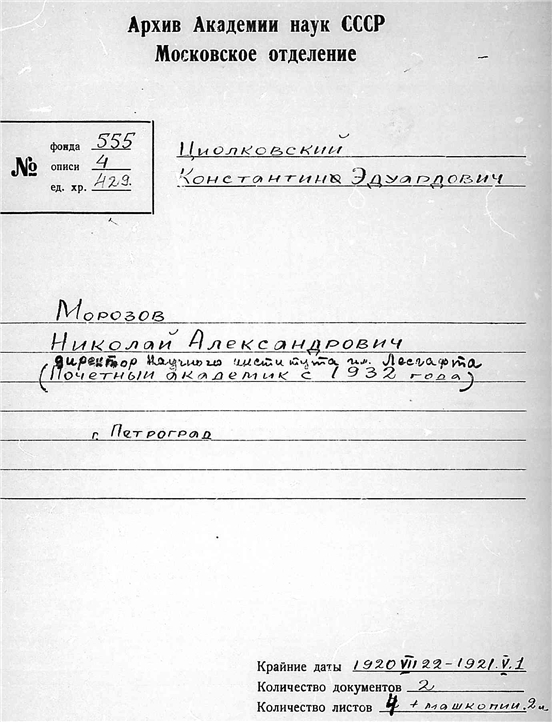 Архив Академии наук СССР
Московское отделение
№
фонда 555
описи 4
ед. хр. 429.
Циолковский
Константин Эдуардович
Морозов
Николай Александрович
директор Научного института им. Лесгафта
(Почетный академик с 1932 года)
г. Петроград
Крайние даты 1920 VII 22 – 1921. V. 1
Количество документов 2
Количество листов 4 + машкопии. 2 л